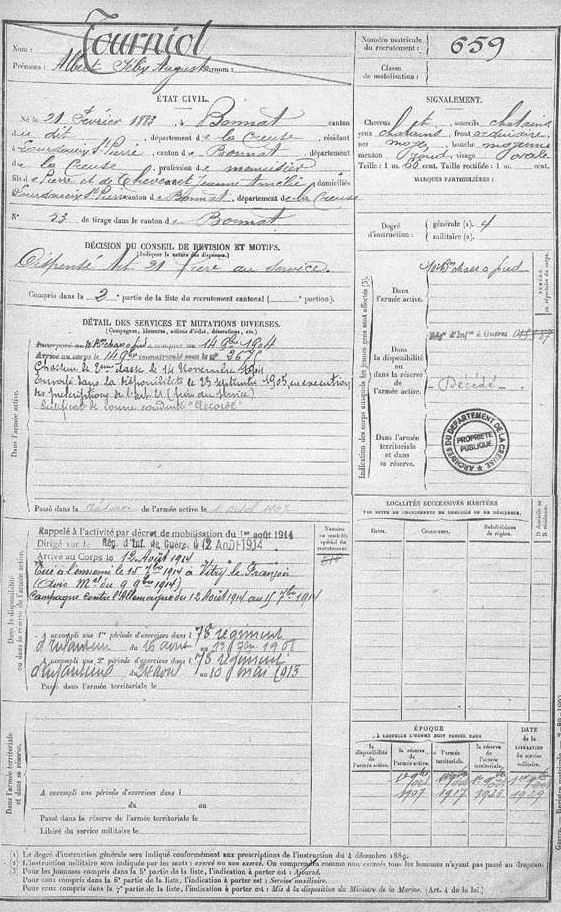 Nom : Tourniol
Prénoms : Albert Félix Auguste surnom :
Numéro matricule du recrutement : 659
Classe de mobilisation :
ÉTAT CIVIL.
Né le 21 Février 1883, à Bonnat, canton
du dit, département de la Creuse, résidant
à Lourdoueix St Pierre, canton de Bonnat, département
de la Creuse, profession de menuisier
fils de Pierre et de Chevenet Jeanne Amélie, domiciliés
Lourdoueix St Pierre canton de Bonnat, département de la Creuse
N° 23 de tirage dans le canton de Bonnat.
SIGNALEMENT.
Cheveux et sourcils chatains
yeux chatains, front ordinaire
nez moyen, bouche moyenne
menton rond, visage ovale
Taille : 1 m. cent. Taille rectifiée : 1 m. cent.
MARQUES PARTICULIÈRES :
DÉCISION DU CONSEIL DE RÉVISION ET MOTIFS.
(Indiquer la nature des dispenses.)
Dispensé Art 21 frère au service.
Compris dans la 2e partie de la liste du recrutement cantonal ( portion).
Degré d'instruction :
générale (1). 4
militaire (2).
DÉTAIL DES SERVICES ET MUTATIONS DIVERSES.
(Campagnes, blessures, actions d'éclat, décorations, etc.)
Dans l'armée active.
Incorporé au Bon chass à pied à compter du 14 9bre 1904
Arrivé au corps le 14 9bre immatriculé sous le n° 3675
Chasseur de 2ème classe le 14 Novembre 1904
Envoyé dans la disponibilité le 23 septembre 1905, en exécution
des prescriptions de l'art. 21 (frère au service)
Certificat de bonne conduite "Accordé"
Passé dans la Réserve de l'armée active le
Indication des corps auxquels les jeunes gens sont affectés (3).
Dans l'armée active.
Bon chass à pied
Dans la disponibilité ou dans la réserve de l'armée active.
Rég. d'Infie de Guéret
Décédé
Dans l'armée territoriale et dans sa réserve.
ARCHIVES DU DÉPARTEMENT DE LA CREUSE
PROPRIÉTÉ PUBLIQUE
LOCALITÉS SUCCESSIVES HABITÉES
PAR SUITE DE CHANGEMENTS DE DOMICILE OU DE RÉSIDENCE.
Dates. Communes. Subdivisions de région. D domicile ou R résidence.
Dans la disponibilité ou dans la réserve de l'armée active.
Rappelé à l'activité par décret de mobilisation du 1er août 1914
Dirigé sur le Rég. d'Inf. de Guéret, le 12 Août 1914
Arrivé au Corps le 12 Août 1914
Tué à l'ennemi le 15 7bre 1914 à Vitry le François
(Avis Mel du 9 9bre 1914)
Campagne contre l'Allemagne du 12 Août 1914 au 15 7bre 1914
A accompli une 1re période d'exercices dans l 78e régiment
d'Infanterie du 16 avril au 1908
A accompli une 2e période d'exercices dans l 78e régiment
d'Infanterie du 24 avril au 10 mai 1913
Passé dans l'armée territoriale le
Dans l'armée territoriale et dans sa réserve.
A accompli une période d'exercices dans l
du au
Passé dans la réserve de l'armée territoriale le
Libéré du service militaire le
ÉPOQUE
À LAQUELLE L'HOMME DOIT PASSER DANS
la disponibilité de l'armée active. la réserve de l'armée active. l'armée territoriale. la réserve de l'armée territoriale.
DATE de la LIBÉRATION du service militaire.
1907 1917 1923 1929
(1) Le degré d'instruction générale sera indiqué conformément aux prescriptions de l'instruction du 4 décembre 1889.
(2) L'instruction militaire sera indiquée par les mots : exercé ou non exercé. On comprendra comme non exercés tous les hommes n'ayant pas passé au drapeau.
(3) Pour les hommes compris dans la 5e partie de la liste, l'indication à porter est : Ajourné.
Pour ceux compris dans la 6e partie de la liste, l'indication à porter est : Service auxiliaire.
Pour ceux compris dans la 7e partie de la liste, l'indication à porter est : Mis à la disposition du Ministre de la Marine. (Art. 4 de la loi.)